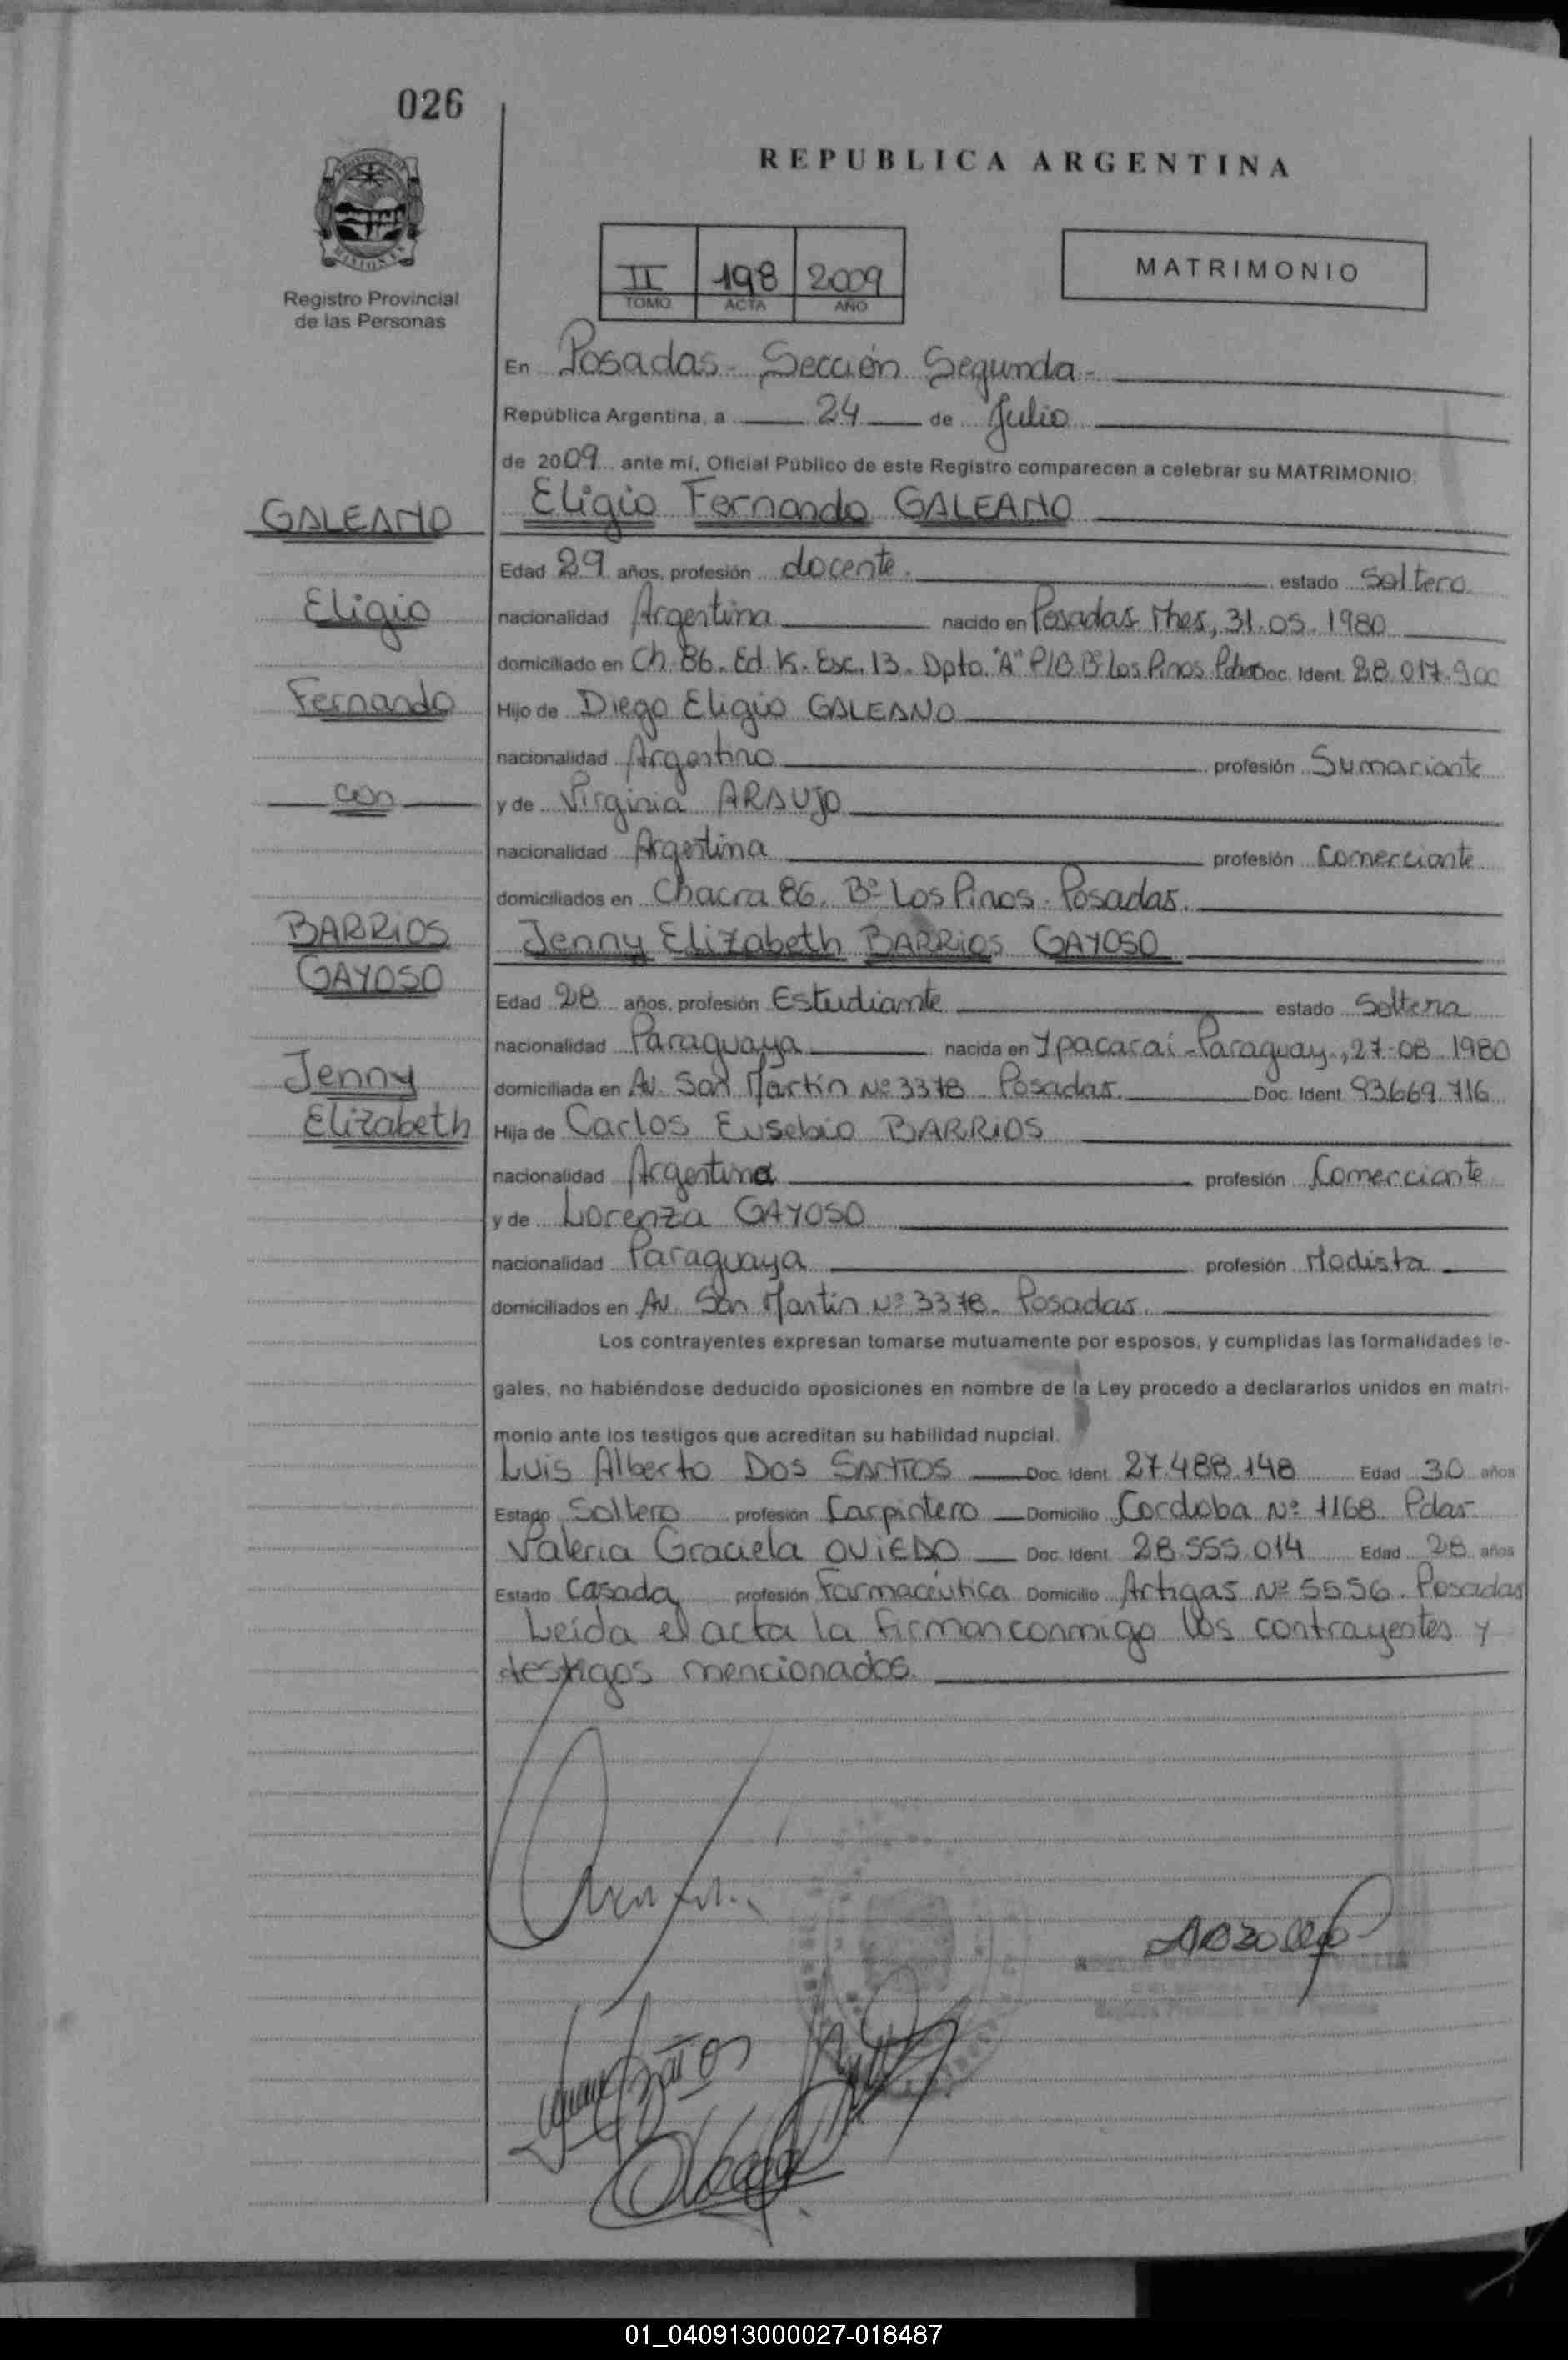 026
REPUBLICA ARGENTINA
Registro Provincial
de las Personas
II 198 2009
TOMO ACTA AÑO
MATRIMONIO
En Posadas - Sección Segunda -
República Argentina, a 24 de Julio
de 2009 ante mí, Oficial Público de este Registro comparecen a celebrar su MATRIMONIO:
GALEANO
Eligio Fernando GALEANO
Edad 29 años, profesión docente. estado Soltero
Eligio
nacionalidad Argentina nacido en Posadas Mnes, 31.05.1980
domiciliado en Ch. 86. Ed. K. Esc. 13. Dpto. "A" P/B Bº Los Pinos Pdas Doc. Ident. 28.017.900
Fernando
Hijo de Diego Eligio GALEANO
nacionalidad Argentino profesión Sumariante
con
y de Virginia ARAUJO
nacionalidad Argentina profesión Comerciante
domiciliados en Chacra 86. Bº Los Pinos - Posadas.
BARRIOS
GAYOSO
Jenny Elizabeth BARRIOS GAYOSO
Edad 28 años, profesión Estudiante estado Soltera
nacionalidad Paraguaya nacida en Ypacarai - Paraguay, 27-08-1980
Jenny
Elizabeth
domiciliada en Av. San Martín Nº 3378 Posadas. Doc. Ident. 93.669.716
Hija de Carlos Eusebio BARRIOS
nacionalidad Argentina profesión Comerciante
y de Lorenza GAYOSO
nacionalidad Paraguaya profesión Modista
domiciliados en Av. San Martin Nº 3378. Posadas.
Los contrayentes expresan tomarse mutuamente por esposos, y cumplidas las formalidades le-
gales, no habiéndose deducido oposiciones en nombre de la Ley procedo a declararlos unidos en matri-
monio ante los testigos que acreditan su habilidad nupcial.
Luis Alberto DOS SANTOS Doc. Ident. 27.488.148 Edad 30 años
Estado Soltero profesión Carpintero Domicilio Cordoba Nº 1168 Pdas.
Valeria Graciela OVIEDO Doc. Ident. 28.555.014 Edad 28 años
Estado Casada profesión Farmacéutica Domicilio Artigas Nº 5556. Posadas
Leída el acta la firman conmigo los contrayentes y
testigos mencionados.
01_040913000027-018487